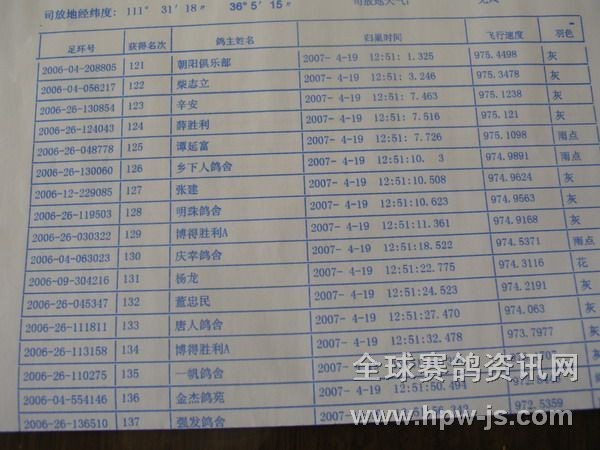 司放地经纬度: 111° 31′ 18″ 36° 5′ 15″ 司放地天气:
足环号 获得名次 鸽主姓名 归巢时间 飞行速度 羽色
2006-04-208805 121 朝阳俱乐部 2007- 4-19 12:51: 1.325 975.4498 灰
2006-04-056217 122 柴志立 2007- 4-19 12:51: 3.246 975.3478 灰
2006-26-130854 123 辛安 2007- 4-19 12:51: 7.463 975.1238 灰
2006-26-124043 124 薛胜利 2007- 4-19 12:51: 7.516 975.121 灰
2006-26-048778 125 谭延富 2007- 4-19 12:51: 7.726 975.1098 雨点
2006-26-130060 126 乡下人鸽舍 2007- 4-19 12:51:10. 3 974.9891 雨点
2006-12-229085 127 张建 2007- 4-19 12:51:10.508 974.9624 灰
2006-26-119503 128 明珠鸽舍 2007- 4-19 12:51:10.623 974.9563 灰
2006-26-030322 129 博得胜利A 2007- 4-19 12:51:11.361 974.9168 灰
2006-04-063023 130 庆幸鸽舍 2007- 4-19 12:51:18.522 974.5371 雨点
2006-09-304216 131 杨龙 2007- 4-19 12:51:22.775 974.3116 花
2006-26-045347 132 董忠民 2007- 4-19 12:51:24.523 974.2191 灰
2006-26-111811 133 唐人鸽舍 2007- 4-19 12:51:27.470 974.063 灰
2006-26-113158 134 博得胜利A 2007- 4-19 12:51:32.478 973.7977 灰
2006-26-110275 135 一帆鸽舍 2007-
2006-04-554146 136 金杰鸽苑 2007- 4-19 12:51:50.494
2006-26-136510 137 强发鸽舍 972.5359
全球赛鸽资讯网
www.hpw-js.com